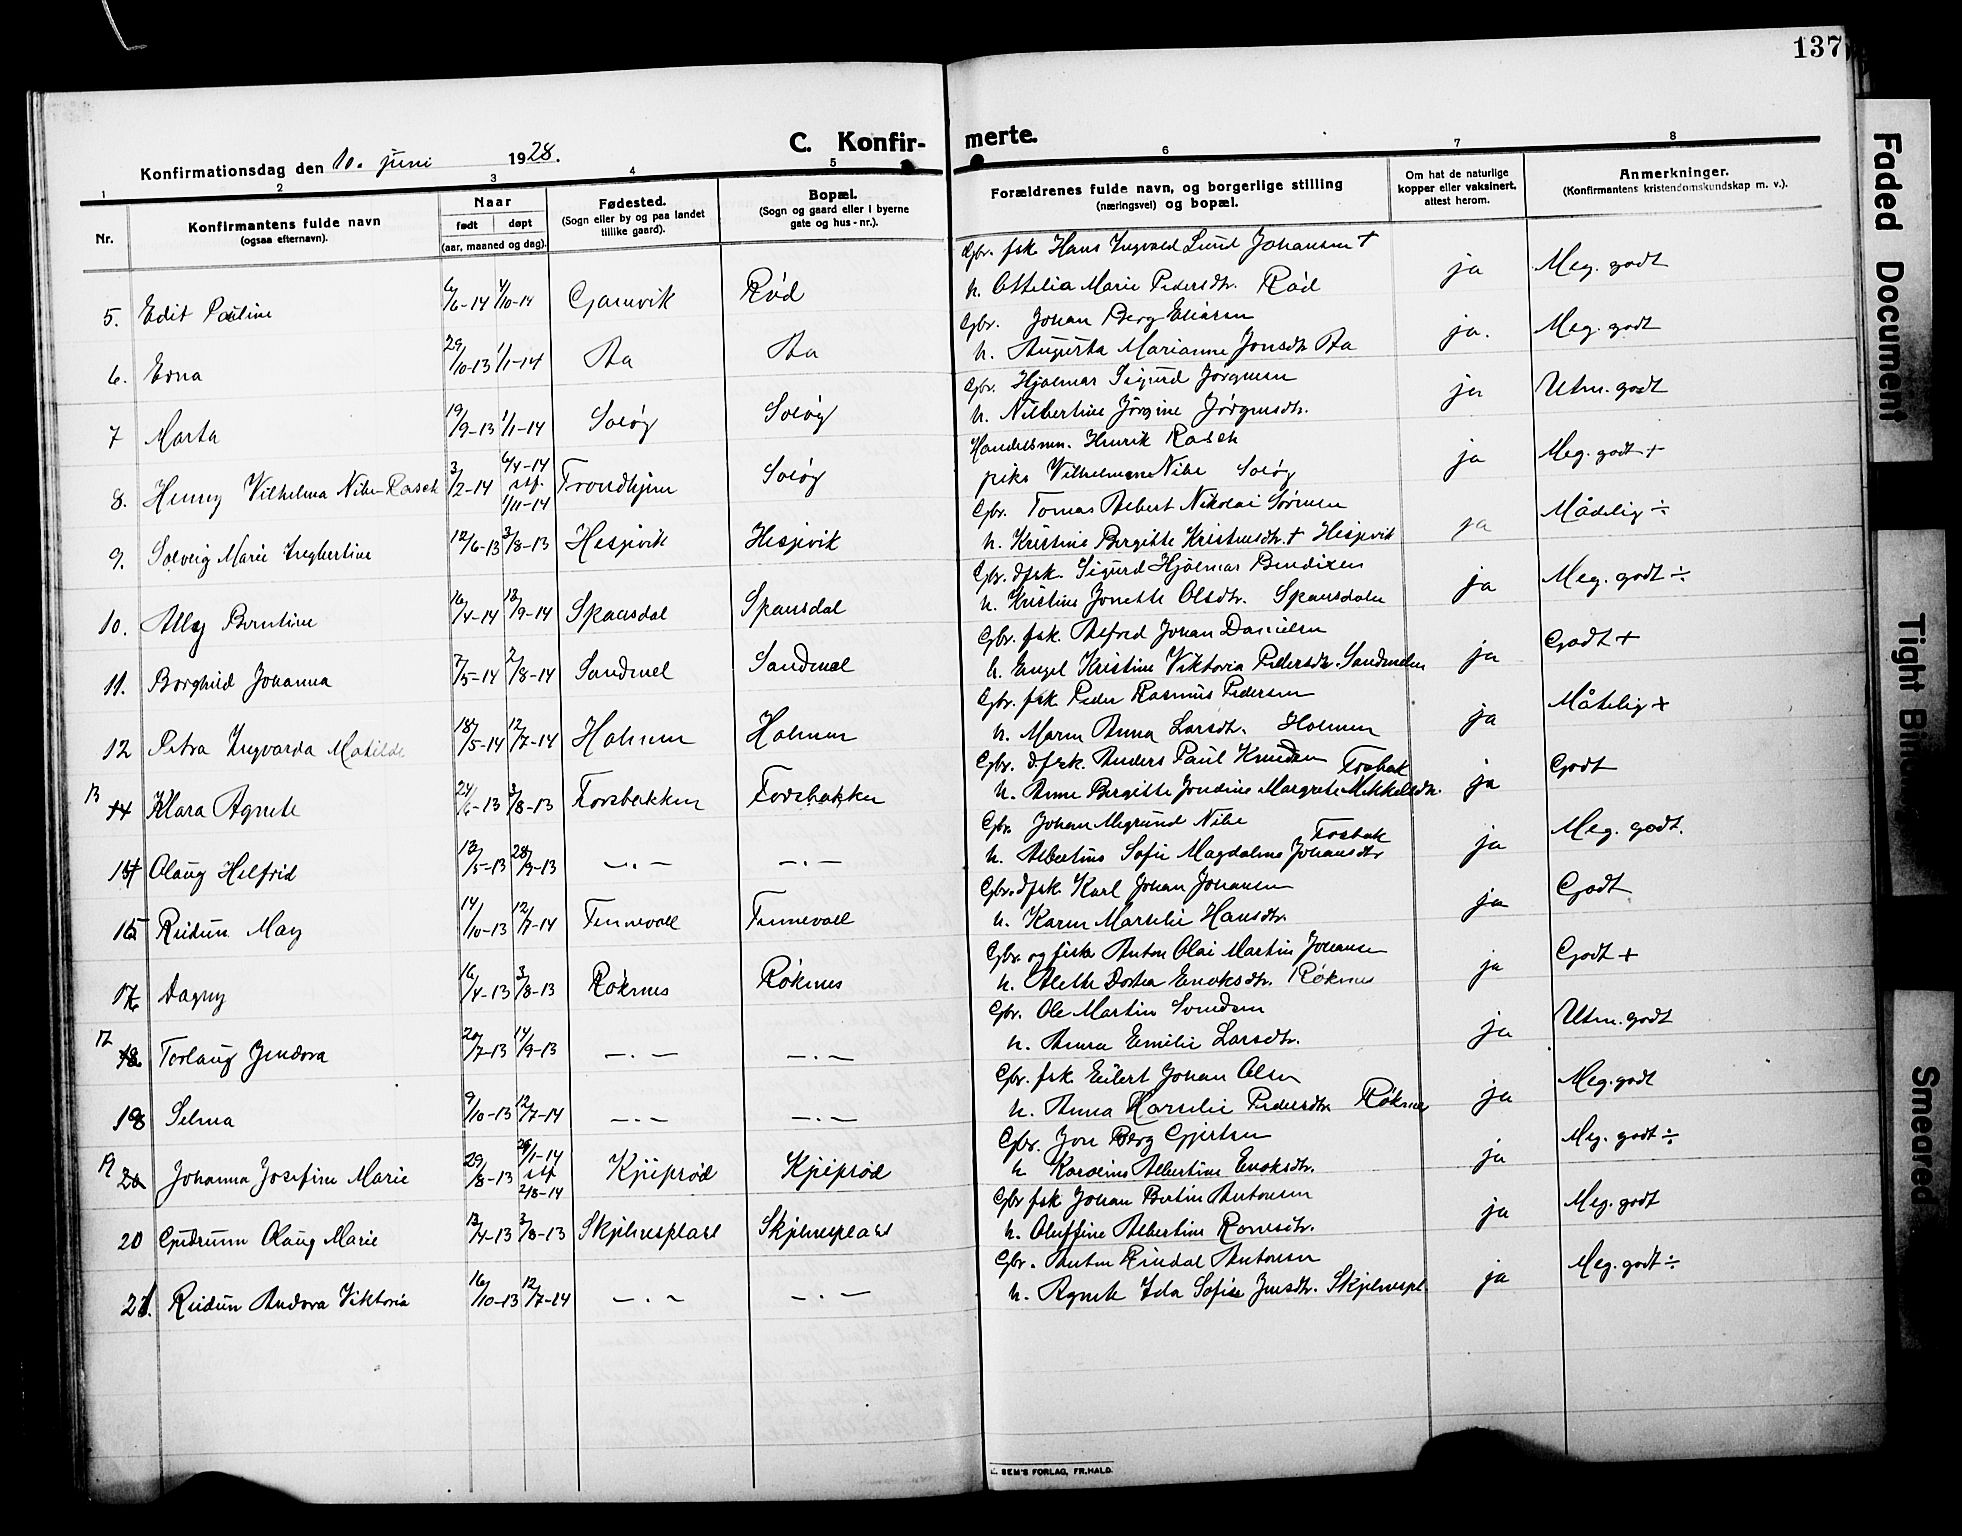 137
Konfirmationsdag den 10. juni 1928. C. Konfir- merte.
1 2 3 4 5 6 7 8
Nr. Konfirmantens fulde navn (ogsaa efternavn). Naar født døpt (aar, maaned og dag). Fødested. (Sogn eller by og paa landet tillike gaard). Bopæl. (Sogn og gaard eller i byerne gate og hus-nr.). Forældrenes fulde navn, og borgerlige stilling (næringsvei) og bopæl. Om hat de naturlige kopper eller vaksinert, attest herom. Anmerkninger. (Konfirmantens kristendomskundskap m. v.).
Gbr. fsk. Hans Ingvald Lund Johansen +
5. Edit Pauline 6/6-14 4/10-14 Gamvik Rød h. Ottelia Marie Pedersdtr. Rød ja Meg. godt
Gbr. Johan Berg Eliasen
6. Edna 29/10-13 1/1-14 Aa Aa h. Augusta Marianne Jonsdtr Aa ja. Meg. godt
Gbr. Hjalmar Sigurd Jørgensen
7 Marta 19/9-13 1/1-14 Soløy Soløy h. Nilbertine Jørgine Jørgensdtr. ja Utm. godt
Handelsmn. Henrik Rasch
8. Henny Vilhelma Nibe-Rasch 3/2-14 6/4-14 stf. 1/11-14 Trondhjem Soløy pike Vilhelmine Nibe Soløy ja Meg. godt +
Gbr. Tomas Albert Nikolai Sørensen
9. Solveig Marie Ingbertine 12/6-13 3/8-13 Hesjevik Hesjevik h. Kristine Bergitte Kristensdtr. + Hesjevik ja Mådelig ÷
Gbr. dfsk. Sigurd Hjalmar Bendixen
10. Ally Berntine 16/4-14 13/9-14 Spansdal Spansdal h. Kristine Jonette Olsdtr. Spansdalen ja Meg. godt ÷
Gbr. fsk. Alfred Johan Danielsen
11. Borghild Johanna 7/5-14 2/8-14 Sandmel Sandmel h. Engel Kristine Viktoria Pedersdtr. Sandmelen ja Godt +
Gbr. fsk. Peder Rasmus Pedersen
12 Petra Ingvarda Matilde 18/5-14 12/7-14 Holmen Holmen h. Maren Anna Larsdtr. Holmen ja Måtelig +
Gbr. dfsk. Anders Paul Knudsen Fosbak
13 14 Klara Agnete 24/6-13 3/8-13 Forsbakken Forsbakken h. Anne Bergitte Jondine Margrete Mikkelsdtr. ja Godt
Gbr. Johan Megrund Nibe Fosbak
14 Olaug Helfrid 13/5-13 28/9-13 —.— —.— h. Albertine Sofie Magdalene Johansdtr ja Meg. godt.
Gbr. dfsk. Karl Johan Johansen
15 Reidun May 14/10-13 12/7-14 Tennevoll Tennevoll h. Karen Marselie Hansdtr. ja Godt
Gbr. og fisker Anton Olai Martin Johansen
16 Dagny 16/4-13 3/8-13 Røknes Røknes h. Alette Dortea Enoksdtr. Røknes ja Godt +
Gbr. Ole Martin Svendsen
17 18 Torlaug Jendora 20/7-13 14/9-13 —.— —.— h. Anna Emilie Larsdtr. ja Utm. godt
Gbr. fsk. Eilert Johan Olsen
18 Selma 9/10-13 12/7-14 —.— —.— h. Anna Marselie Pedersdtr. Røknes ja Meg. godt
Gbr. Jon Berg Gjertsen
19 20 Johanna Josefine Marie 29/8-13 29/1-14 stf 2/8-14 Kjeiprød Kjeiprød h Karoline Albertine Enoksdtr. ja Meg. godt ÷
Gbr fsk Johan Bertin Antonsen
20 Gudrunn Olaug Marie 13/4-13 3/8-13 Skjelnesplass Skjelnesplass h. Oluffine Albertine Ronesdtr. ja Meg. godt
Gbr. Anton Rindal Antonsen
21. Reidun Andora Viktoria 16/10-13 12/7-14 —.— —.— h. Agnete Ida Sofie Jensdtr. Skjelnespl. ja Meg. godt ÷
E. SEM'S FORLAG, FR.HALD.
Faded Document
Tight Bin
Smeared